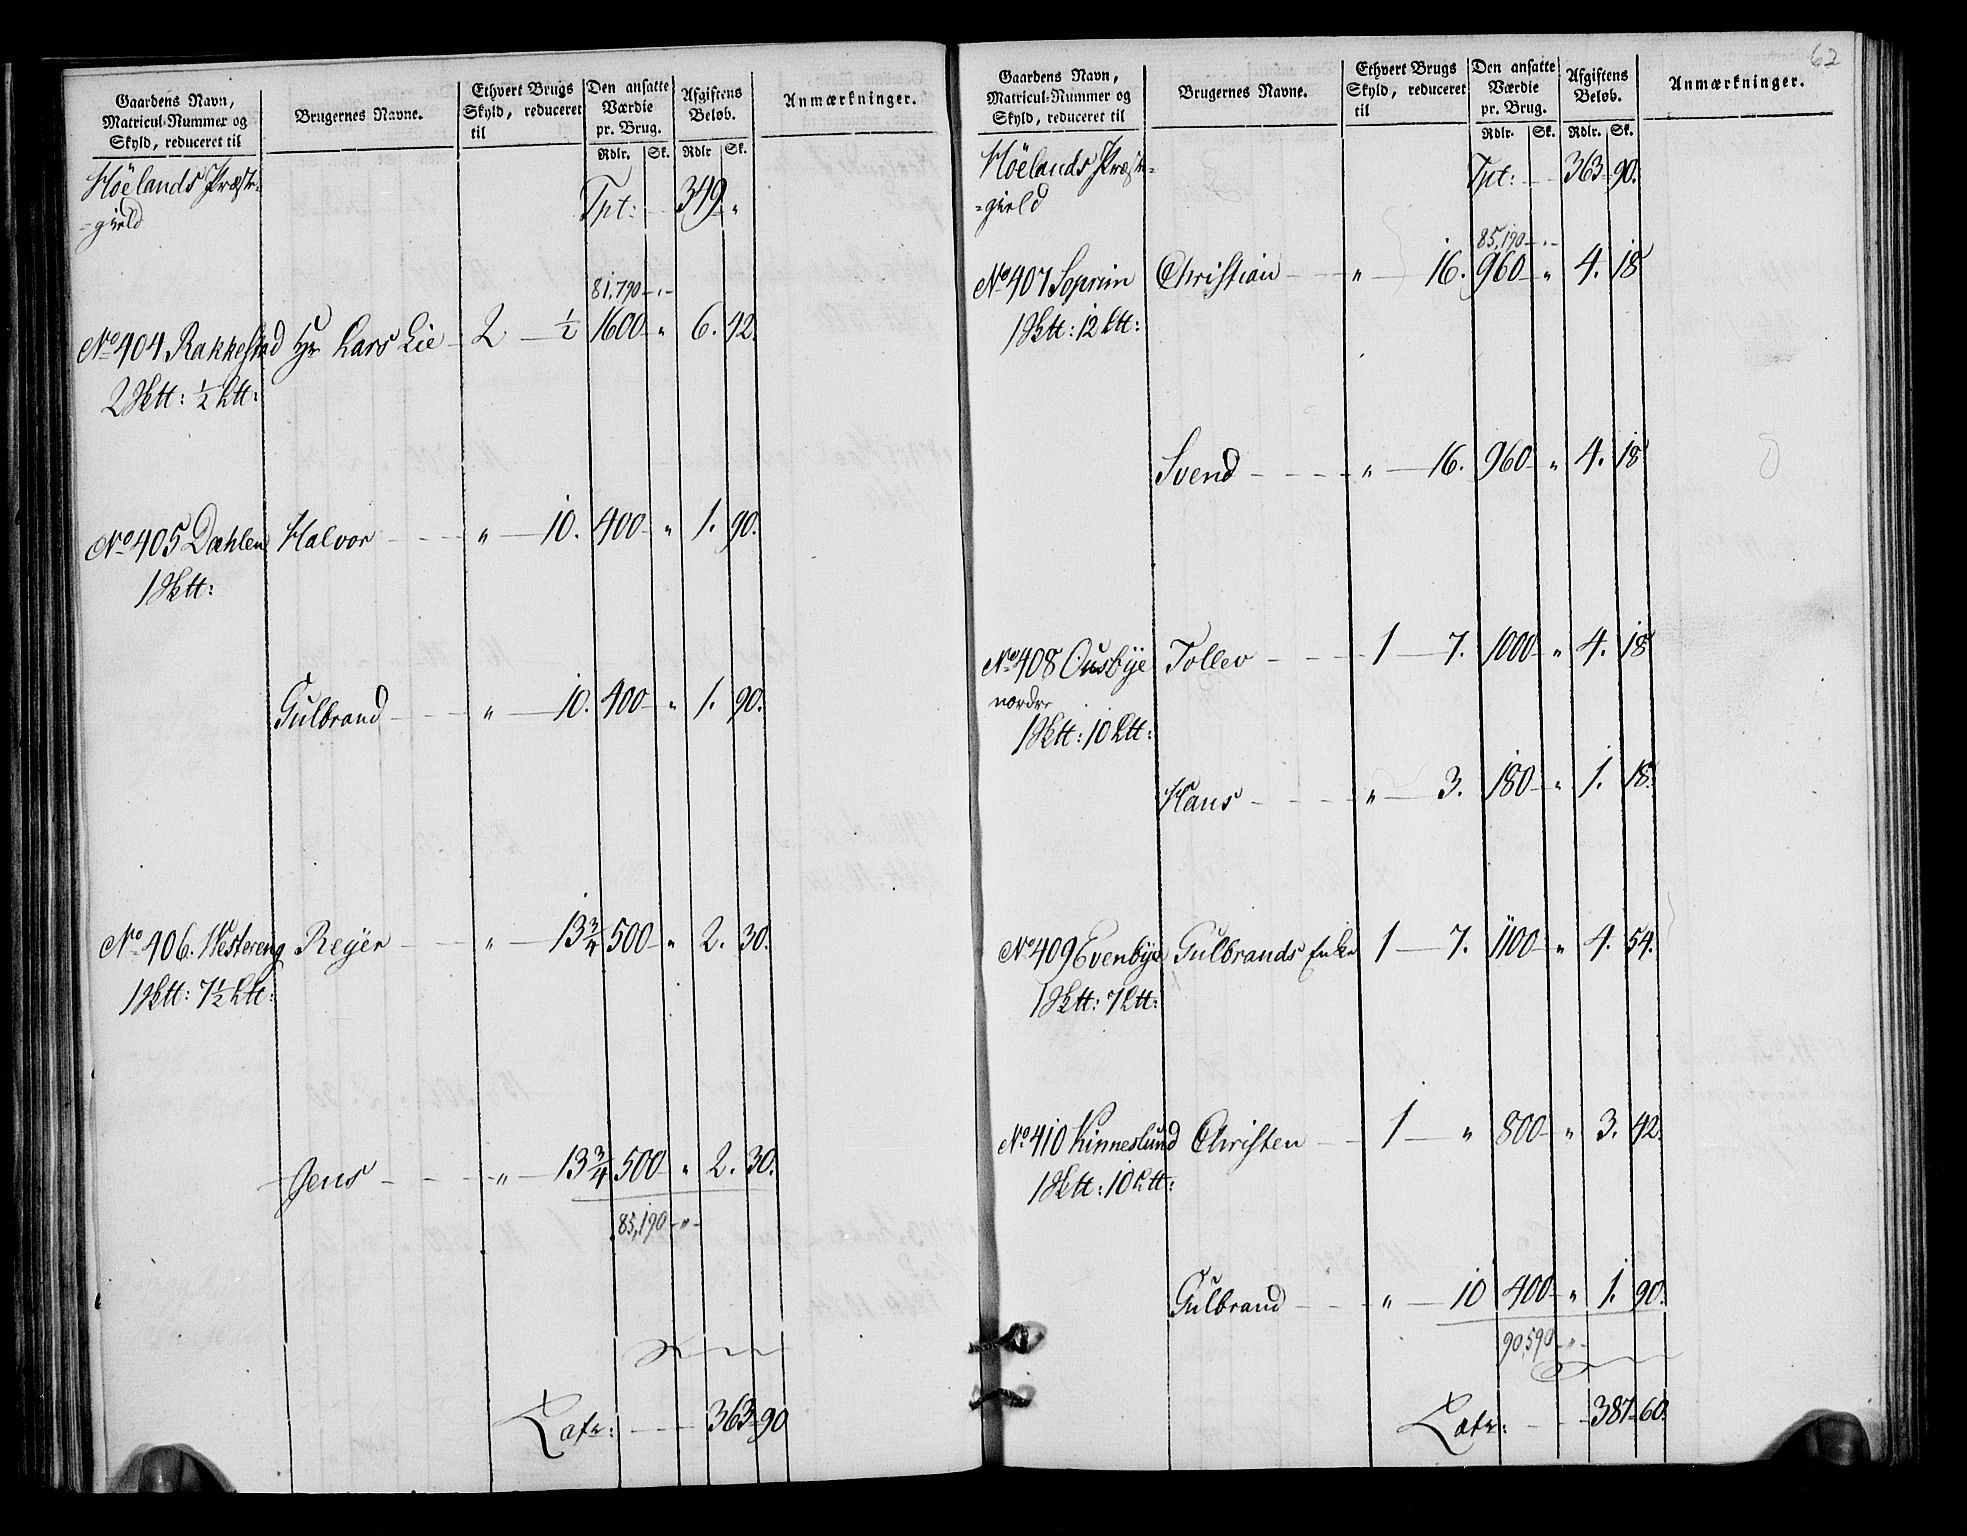 Gaardens Navn, Matricul-Nummer og Skyld, reduceret til | Brugernes Navne. | Ethvert Brugs Skyld, reduceret til | Den ansatte Værdie pr. Brug. | Afgiftens Beløb. | Anmærkninger.
Rdlr. Sk. Rdlr Sk.
Höelands Præste- Tpt: 349 "
=gield
81,790 - " -
No 404 Rakkestad Hr Lars Lie 2 — 1/2 1600 " 6. 42.
2 Sktt: 1/2 Ltt:
No 405 Dæhlen Halvor " — 10. 400 " 1. 90.
1 Sktt:
Gulbrand " — 10. 400 " 1. 90.
No 406. Westereng Reÿer " — 13 3/4 500 " 2. 30.
1 Sktt: 7 1/2 Ltt:
Jens " — 13 3/4 500 " 2. 30.
85,190 - " -
Latr: 363 - 90
62
Gaardens Navn, Matricul-Nummer og Skyld, reduceret til | Brugernes Navne. | Ethvert Brugs Skyld, reduceret til | Den ansatte Værdie pr. Brug. | Afgiftens Beløb. | Anmærkninger.
Rdlr. Sk. Rdlr. Sk.
Höelands Præste- Tpt: 363 - 90.
=gield
85,190 - " -
No 407 Soprim Christian " — 16. 960 " 4. 18
1 Sktt: 12 Ltt:
Svend " — 16. 960 " 4. 18
No 408 Ousbÿe Tollev 1 — 7. 1000 " 4. 18
nordre
1 Sktt: 10 Ltt:
Hans " — 3. 180 " 1. 18.
No 409 Evenbÿe Gulbrands Enke 1 — 7. 1100 " 4. 54.
1 Sktt: 7 Ltt:
No 410 Kinneslund Christen 1 — " 800 " 3. 42.
1 Sktt: 10 Ltt:
Gulbrand " — 10 400 " 1. 90.
90,590 - " -
Latr: 387 - 60.